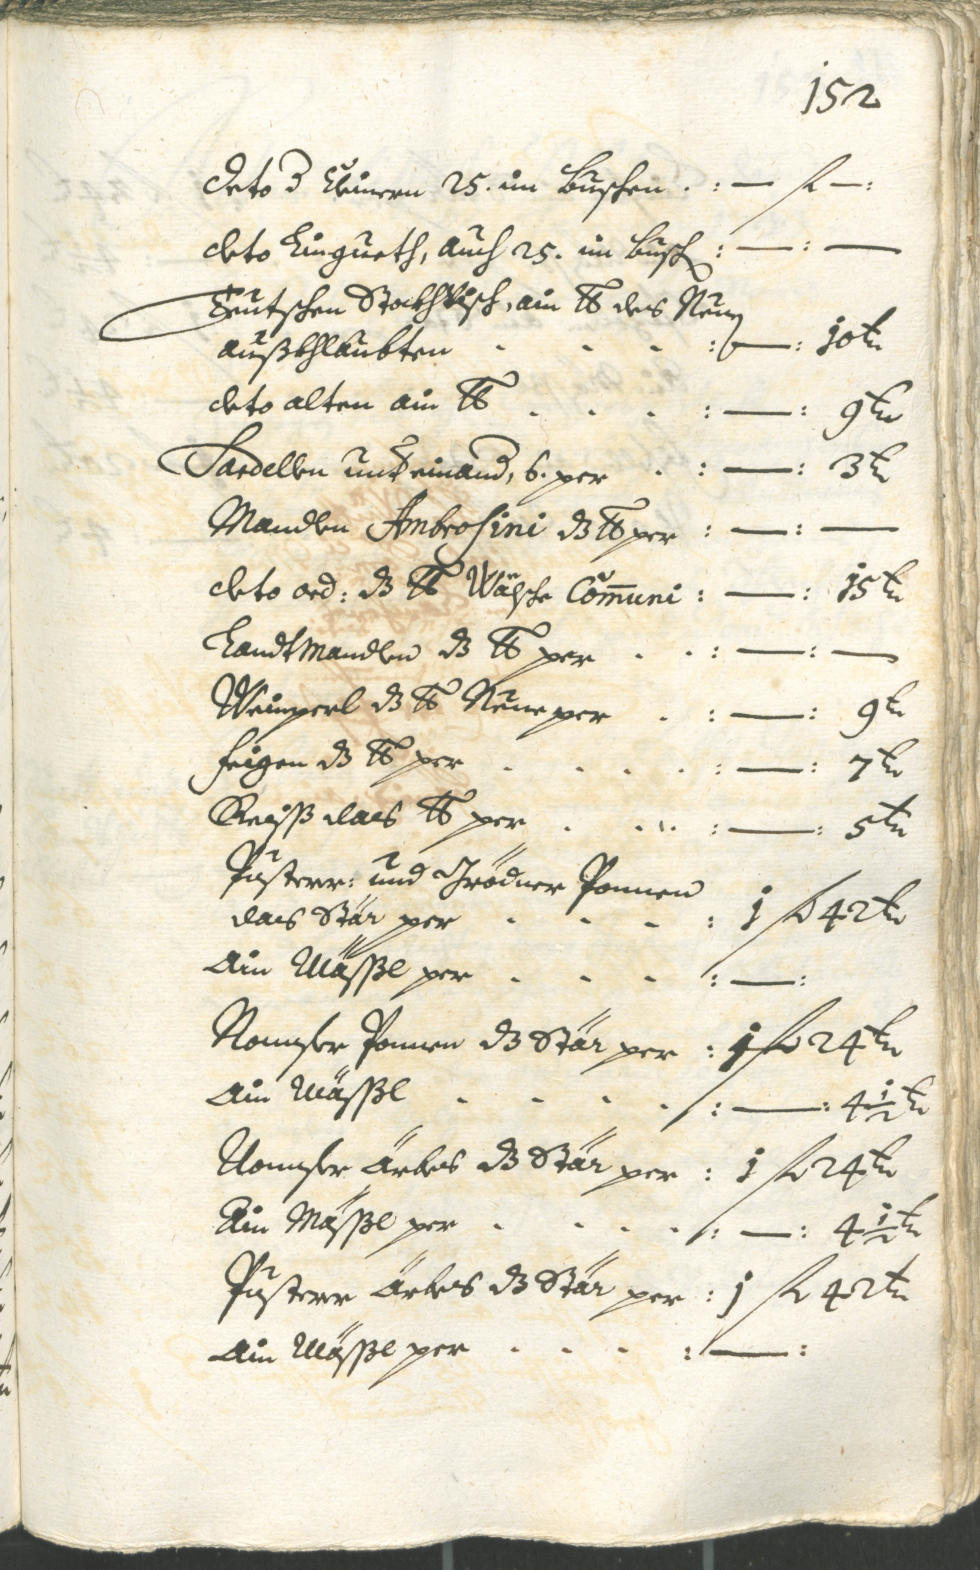 152
deto d Kleinern 25. im Buschen . : — f — :
deto Eingueth, auch 25. im Busch : — : —
Teutschen Stockhfisch, ain ℔ des Neuen
außkhlaubten - - - : — : 10 kr
deto alten ain ℔ . . . : — : 9 kr
Sardellen untereinand, 6. per . : — : 3 kr
Mandlen Ambrosini dz ℔ per : — : —
deto ord: dz ℔ Wälsche Com̄uni : — : 15 kr
Landtmandlen dz ℔ per . . : — : —
Weinperl dz ℔ Neue per . : — : 9 kr
Feigen dz ℔ per . . . . : — : 7 kr
Reiß daes ℔ per . . . . : — : 5 kr
Pusterr: und Grödner Ponnen
daes Stär per - - - : 1 f 42 kr
Ain Mässl per . - - : — :
Nonsper Ponnen dz Stär per : 1 f 24 kr
Ain Mässl - - - . : — : 4 1/2 kr
Nonsper Ärbes dz Stär per : 1 f 24 kr
Ain Mässl per . . . . : — : 4 1/2 kr
Pusterr Ärbes dz Stär per : 1 f 42 kr
Ain Mässl per . . . : — :